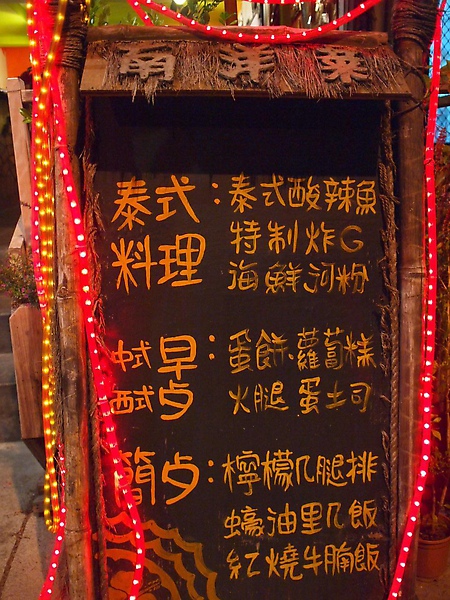 南洋葉
泰式料理：泰式酸辣魚
特制炸G
海鮮河粉
中式早：蛋餅.蘿蔔糕
西式点 火腿蛋土司
簡点：檸檬几腿排
蠔油里几飯
紅燒牛腩飯